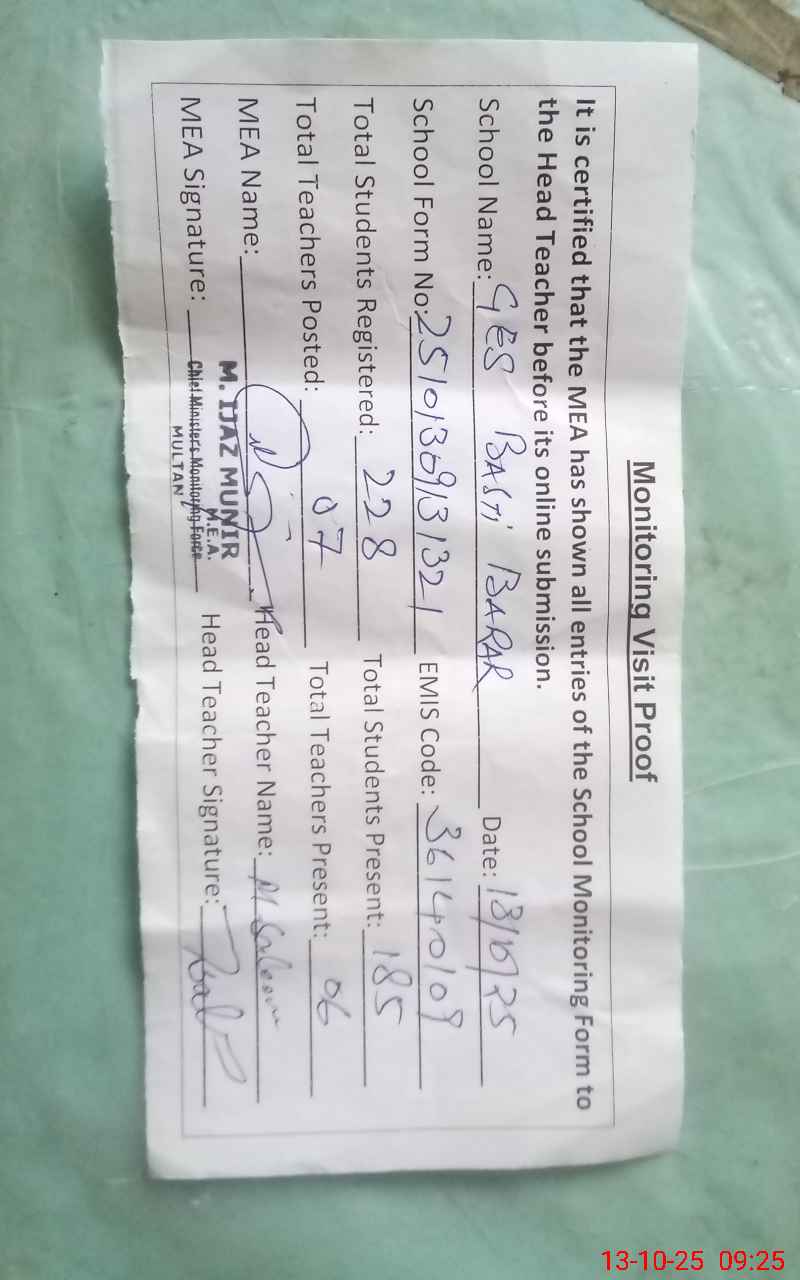 Monitoring Visit Proof
It is certified that the MEA has shown all entries of the School Monitoring Form to
the Head Teacher before its online submission.
School Name: GES BASTI BARAR Date: 13/10/25
School Form No: 2510136913321 EMIS Code: 36140109
Total Students Registered: 228 Total Students Present: 185
Total Teachers Posted: 07 Total Teachers Present: 06
MEA Name: Head Teacher Name: M Saleem
MEA Signature: Head Teacher Signature:
M. IJAZ MUNIR
M.E.A.
Chief Minister's Monitoring Force
MULTAN
13-10-25 09:25